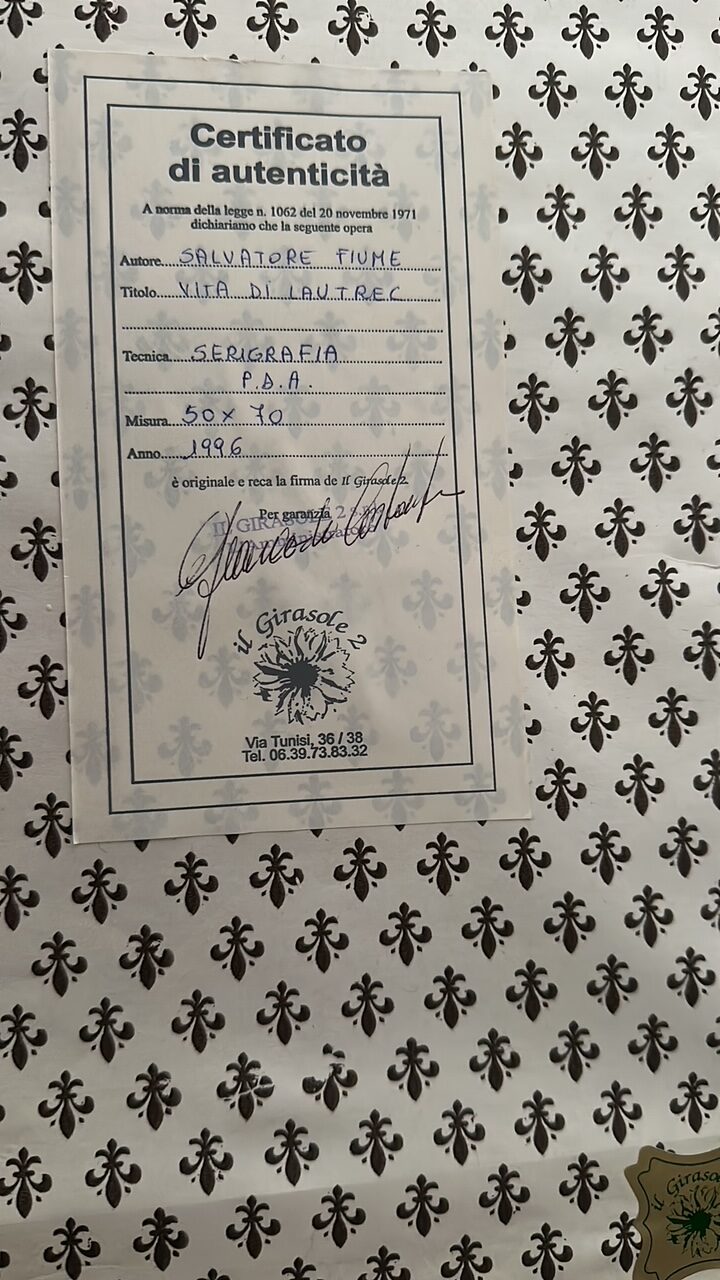 Certificato
di autenticità
A norma della legge n. 1062 del 20 novembre 1971
dichiariamo che la seguente opera
Autore....SALVATORE FIUME
Titolo....VITA DI LAUTREC
Tecnica....SERIGRAFIA
P.D.A.
Misura...50 x 70
Anno....1996
è originale e reca la firma de Il Girasole 2
Per garanzia
IL GIRASOLE 2 s.r.l.
il Girasole 2
Via Tunisi, 36 / 38
Tel. 06.39.73.83.32
il Girasole